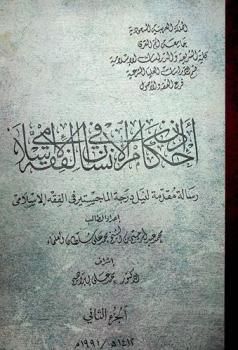 المملكة العربية السعودية
جامعة أم القرى
كلية الشريعة والدراسات الإسلامية
قسم الدراسات العليا الشرعية
فرع الفقه والأصول
أحكام لسان الإنسان في الفقه الإسلامي
رسالة مقدمة لنيل درجة الماجستير في الفقه الإسلامي
إعداد الطالب
محمد عبد الرحيم بن الشيخ محمد علي سلطان العلماء
إشراف
الدكتور
الجزء الثاني
١٤١٢هـ / ١٩٩١م